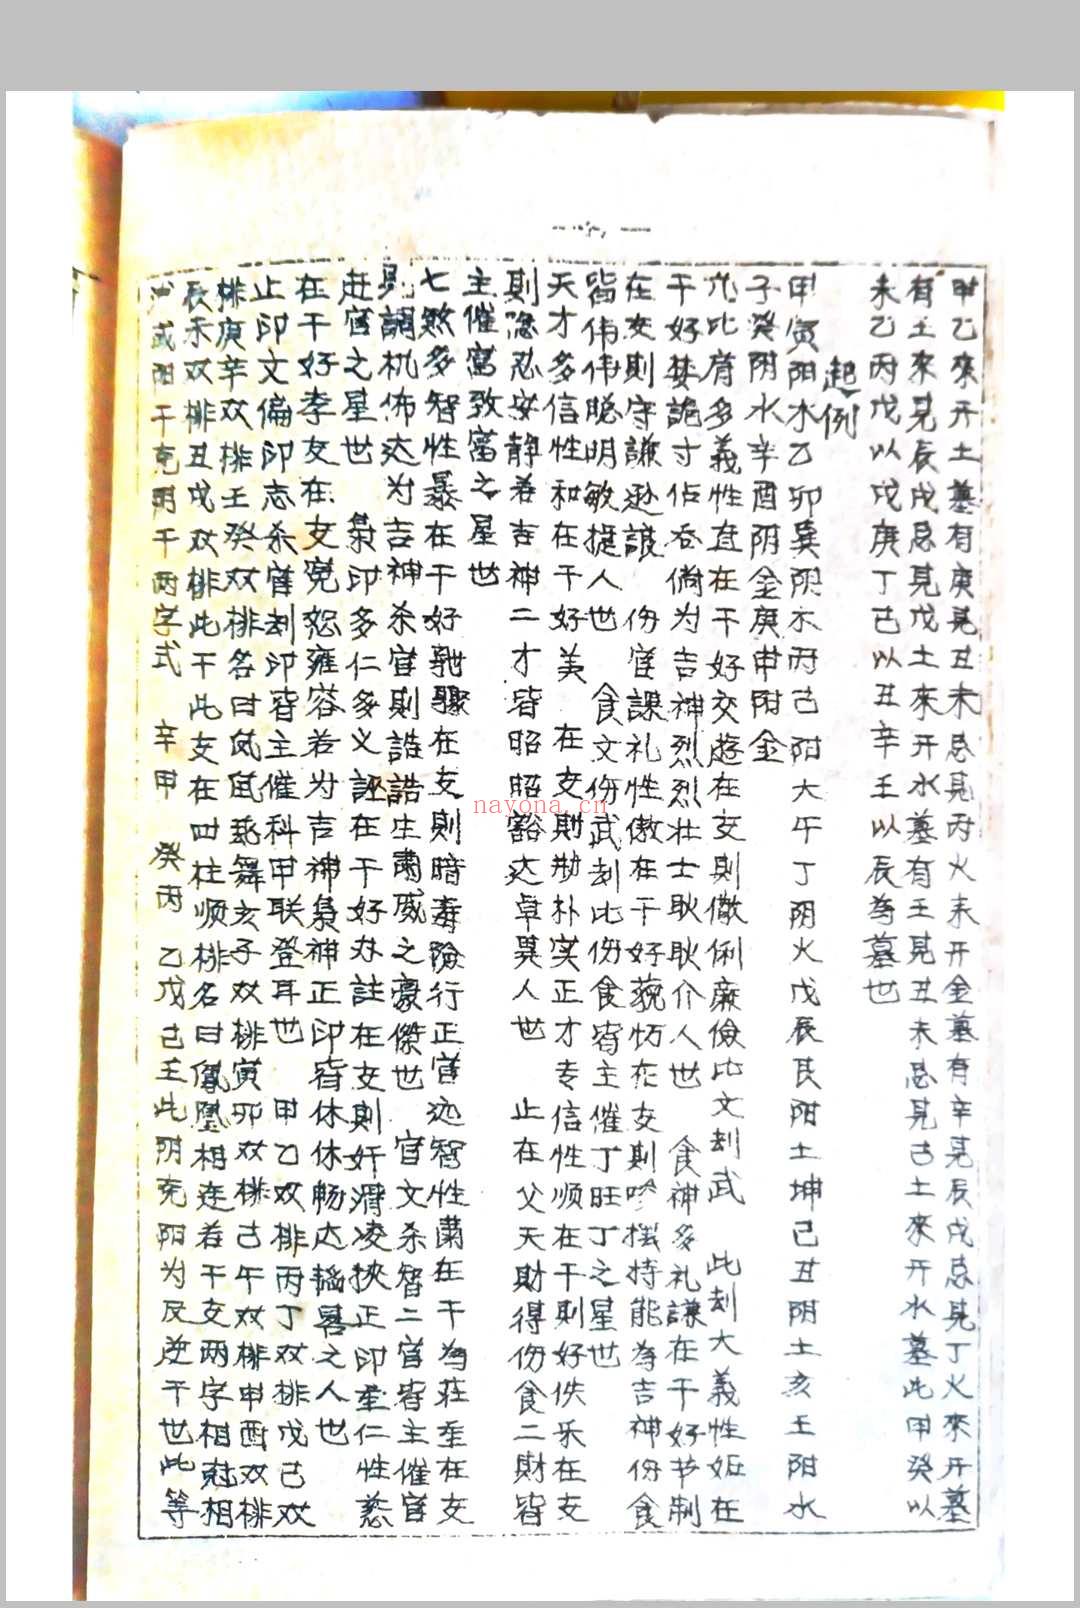 甲乙來开土墓有庚見丑未忌見丙火未开金墓有辛見辰戊忌見丁火來开墓
有土來見辰戊忌見戊土來开水墓有壬見丑未忌見己土來开水墓此甲癸以
未乙丙戊以戊庚丁己以丑辛壬以辰為墓也
起例
甲寅阳木乙卯巽阴木丙己阳大午丁阴火戊辰艮阳土坤己丑阴土亥壬阳水
子癸阴水辛酉阴金庚申阳金
比肩多義性直在干好交遊在支則儉俐廉儉比文刦武 此刦大義性姬在
干好婪詭寸佔吞倘为吉神烈烈壮士耿耿介人世 食神多礼謙在干好节制
在支則守謙逊譲 伤官謀礼性傲在干好藐忉在支則吟摆持能為吉神伤食
皆伟伟聪明敏捷人也 食文伤武刦比伤食皆主催丁旺丁之星也
天才多信性和在干好美 在支則勤朴实正才专信性顺在干則好佚乐在支
則隐忍安静若吉神二才皆昭昭豁达卓異人也 止在父天財得伤食二財皆
主催富致富之星也
七煞多智性暴在干好馳驟在支則暗毒險行正官迊智性蕭在干為莊奎在支
則調机佈达为吉神杀官則誥誥生肅威之豪傑也 官文杀智二官皆主催官
赴官之星也 枭印多仁多义誣在干好办註在支則奸滑凌挾正印奎仁性慈
在干好孝友在支寛恕雍容若为吉神枭神正印皆休休畅达韬畧之人也
止印文偏印志杀官刦印皆主催科甲联登耳也 甲乙双排丙丁双排戊己双
排庚辛双排壬癸双排名曰凤凨飛舞亥子双排寅卯双排己午双排申酉双排
辰未双排丑戌双排此干此支在四柱顺排名曰鳳凰相连若干支两字相冠相
或阳干克阴干两字式 辛甲 癸丙 乙戊己壬此阴克阳为反逆干也此等
nayona.cn